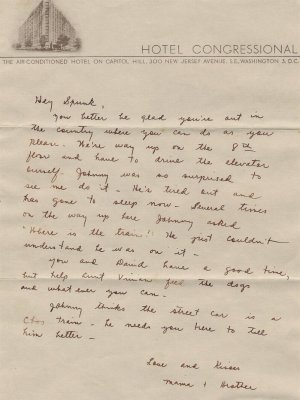 HOTEL CONGRESSIONAL
THE AIR-CONDITIONED HOTEL ON CAPITOL HILL, 300 NEW JERSEY AVENUE, S.E., WASHINGTON 3, D.C.
Hey Spunk,
you better be glad you're out in
the country where you can do as you
please. We're way up on the 8th
floor and have to drive the elevator
ourself. Johnny was so surprised to
see me do it - He's tired out and
has gone to sleep now - Several times
on the way up here Johnny asked
"Where is the train"! He just couldn't
understand he was on it -
you and David have a good time,
but help Aunt Vivian feed the dogs
and what ever you can -
Johnny thinks the street car is a
train - he needs you here to tell
him better -
Love and Kisses
mama + Brother